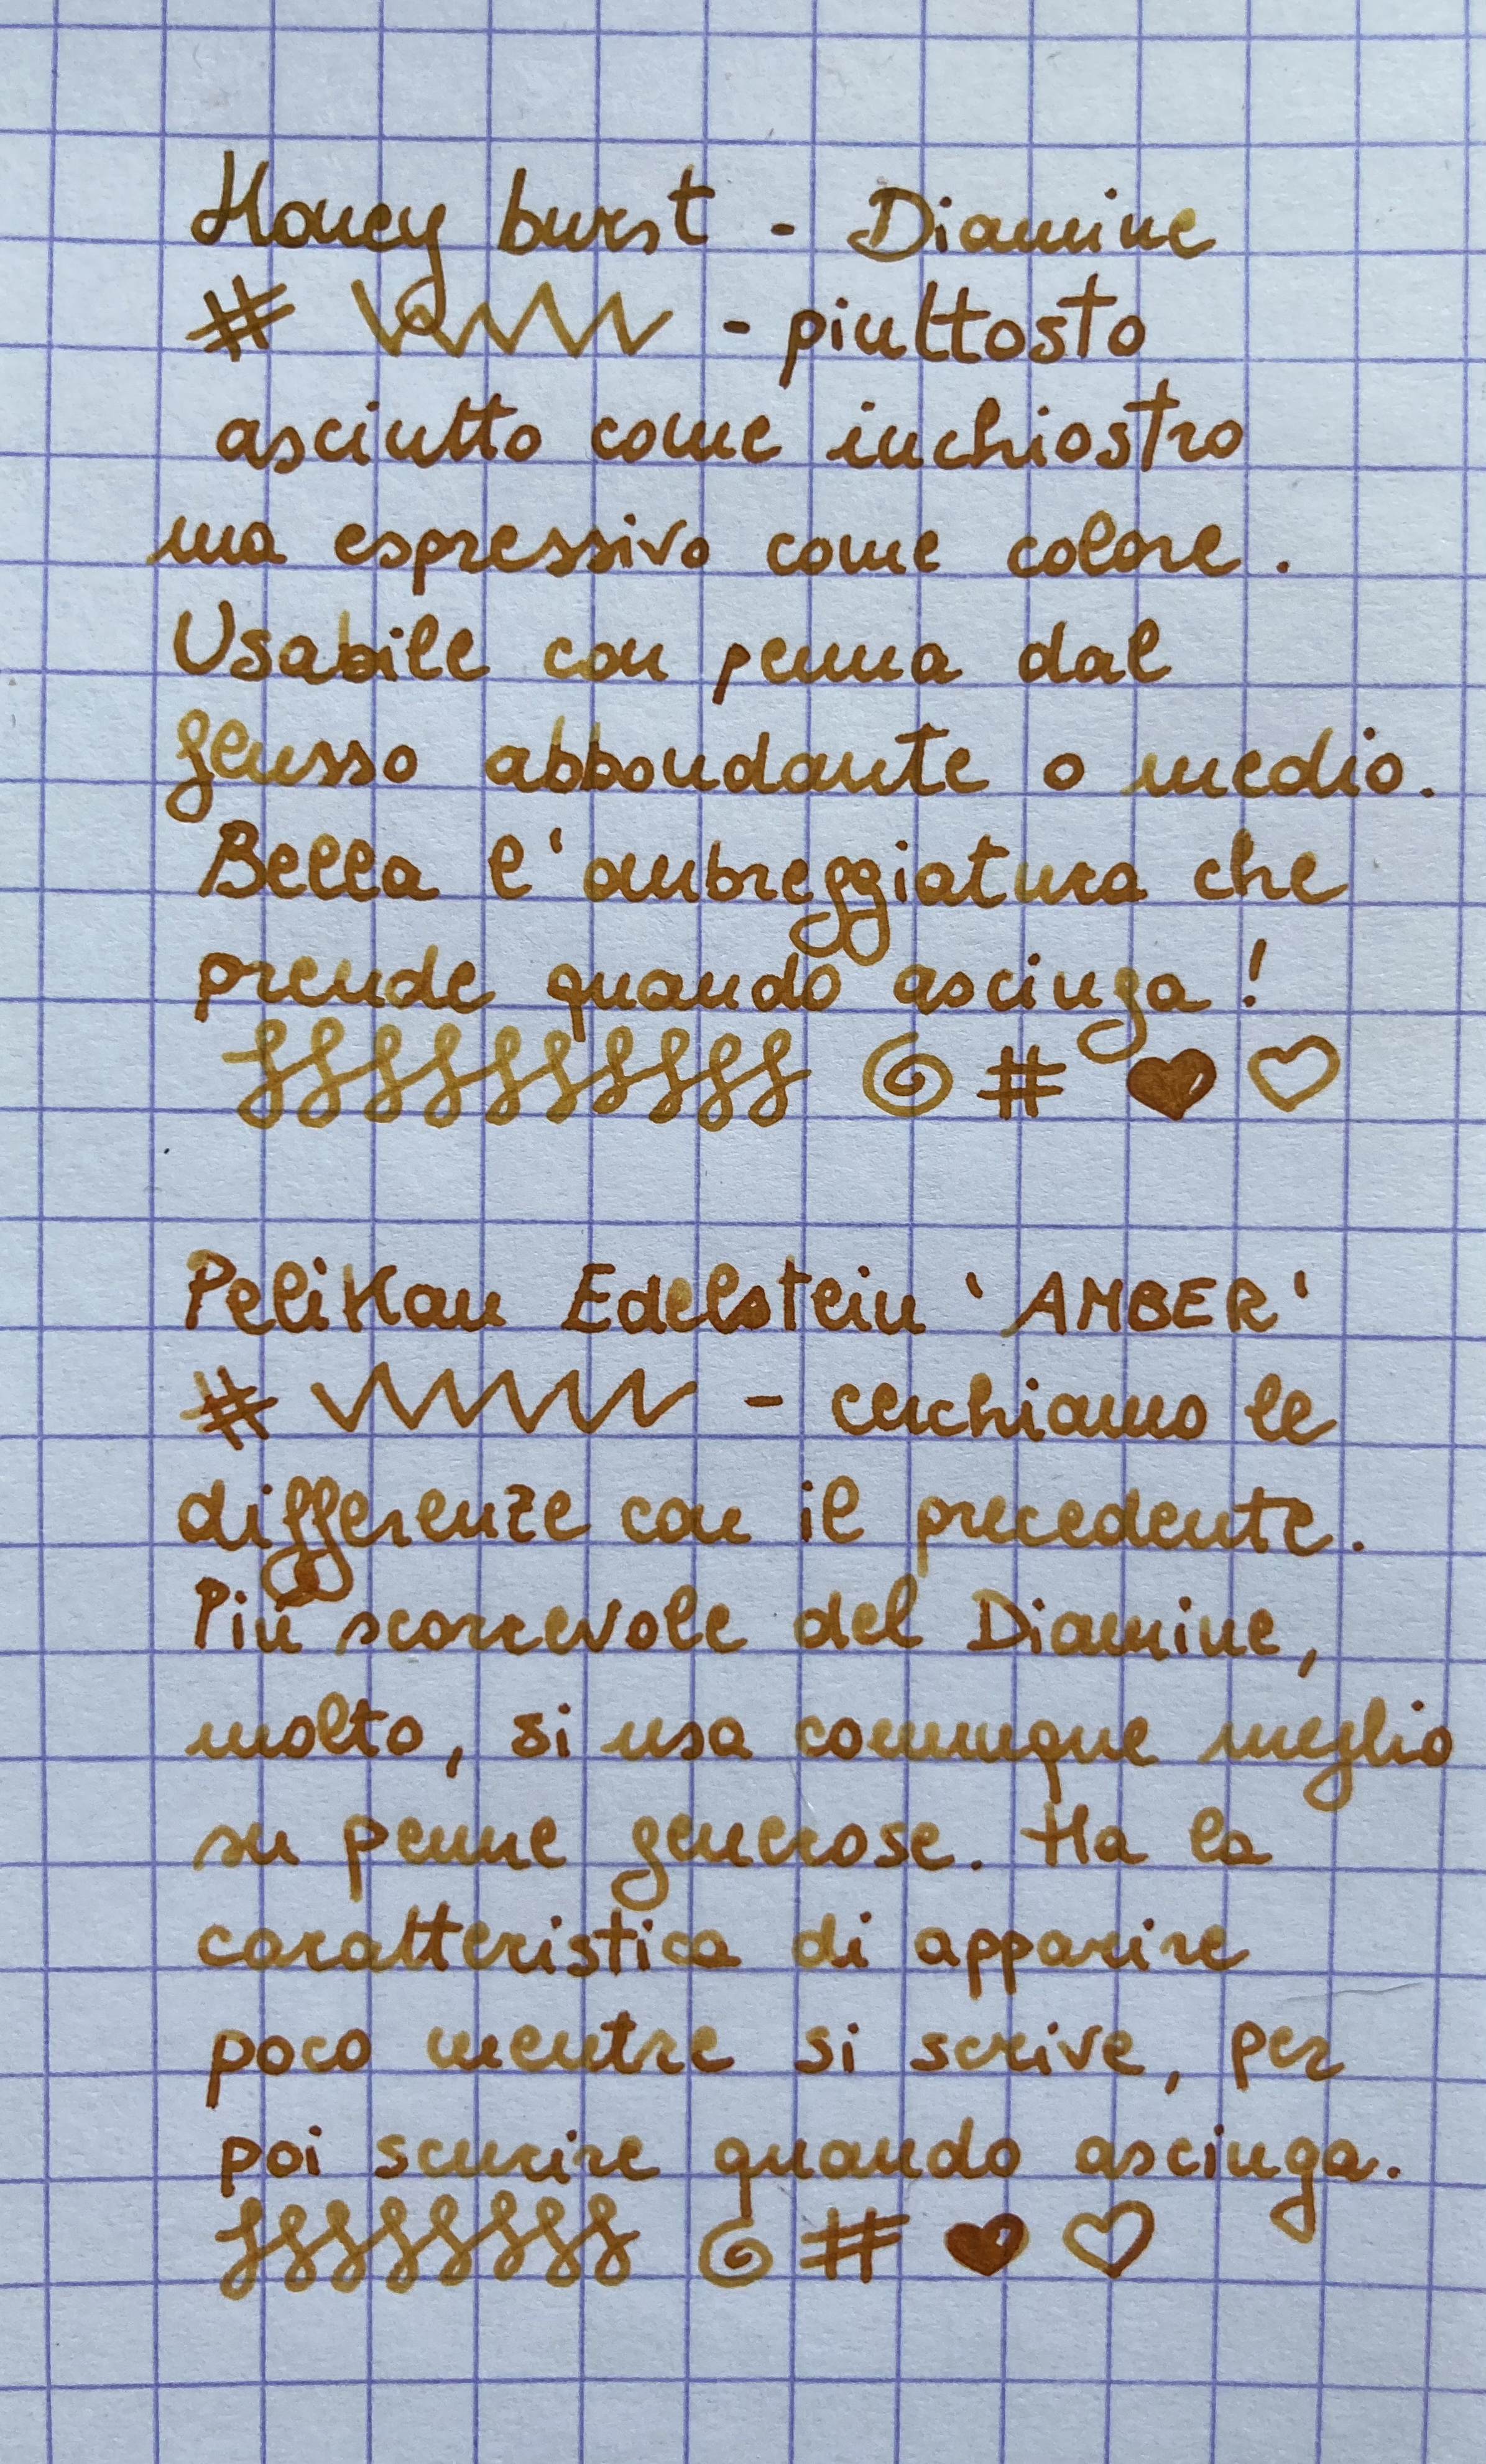 Honey burst - Diamine
# - piuttosto
asciutto come inchiostro
ma espressivo come colore.
Usabile con penna dal
flusso abbondante o medio.
Bella l'ombreggiatura che
prende quando asciuga!
#
Pelikan Edelstein 'AMBER'
# - cerchiamo le
differenze con il precedente.
Più scorrevole del Diamine,
molto, si usa comunque meglio
su penne generose. Ha la
caratteristica di apparire
poco mentre si scrive, per
poi scurire quando asciuga.
#